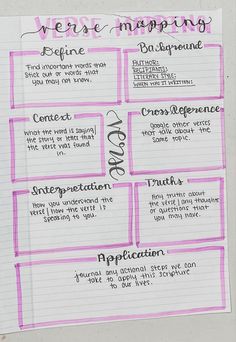 verse mapping
Define
Find important words that
stick out or words that
you may not know.
Background
AUTHOR:
RECIPIENTS:
LITERARY STYLE:
WHEN WAS IT WRITTEN:
Context
What the word is saying
the story or letter that
the verse was found
in.
verse
Cross Reference
Google other verses
that talk about the
same topic.
Interpretation
How you understand the
verse/how the verse is
speaking to you.
Truths
Any truths about
the verse/any thoughts
or questions that
you may have.
Application
Journal any actional steps we can
take to apply this scripture
to our lives.